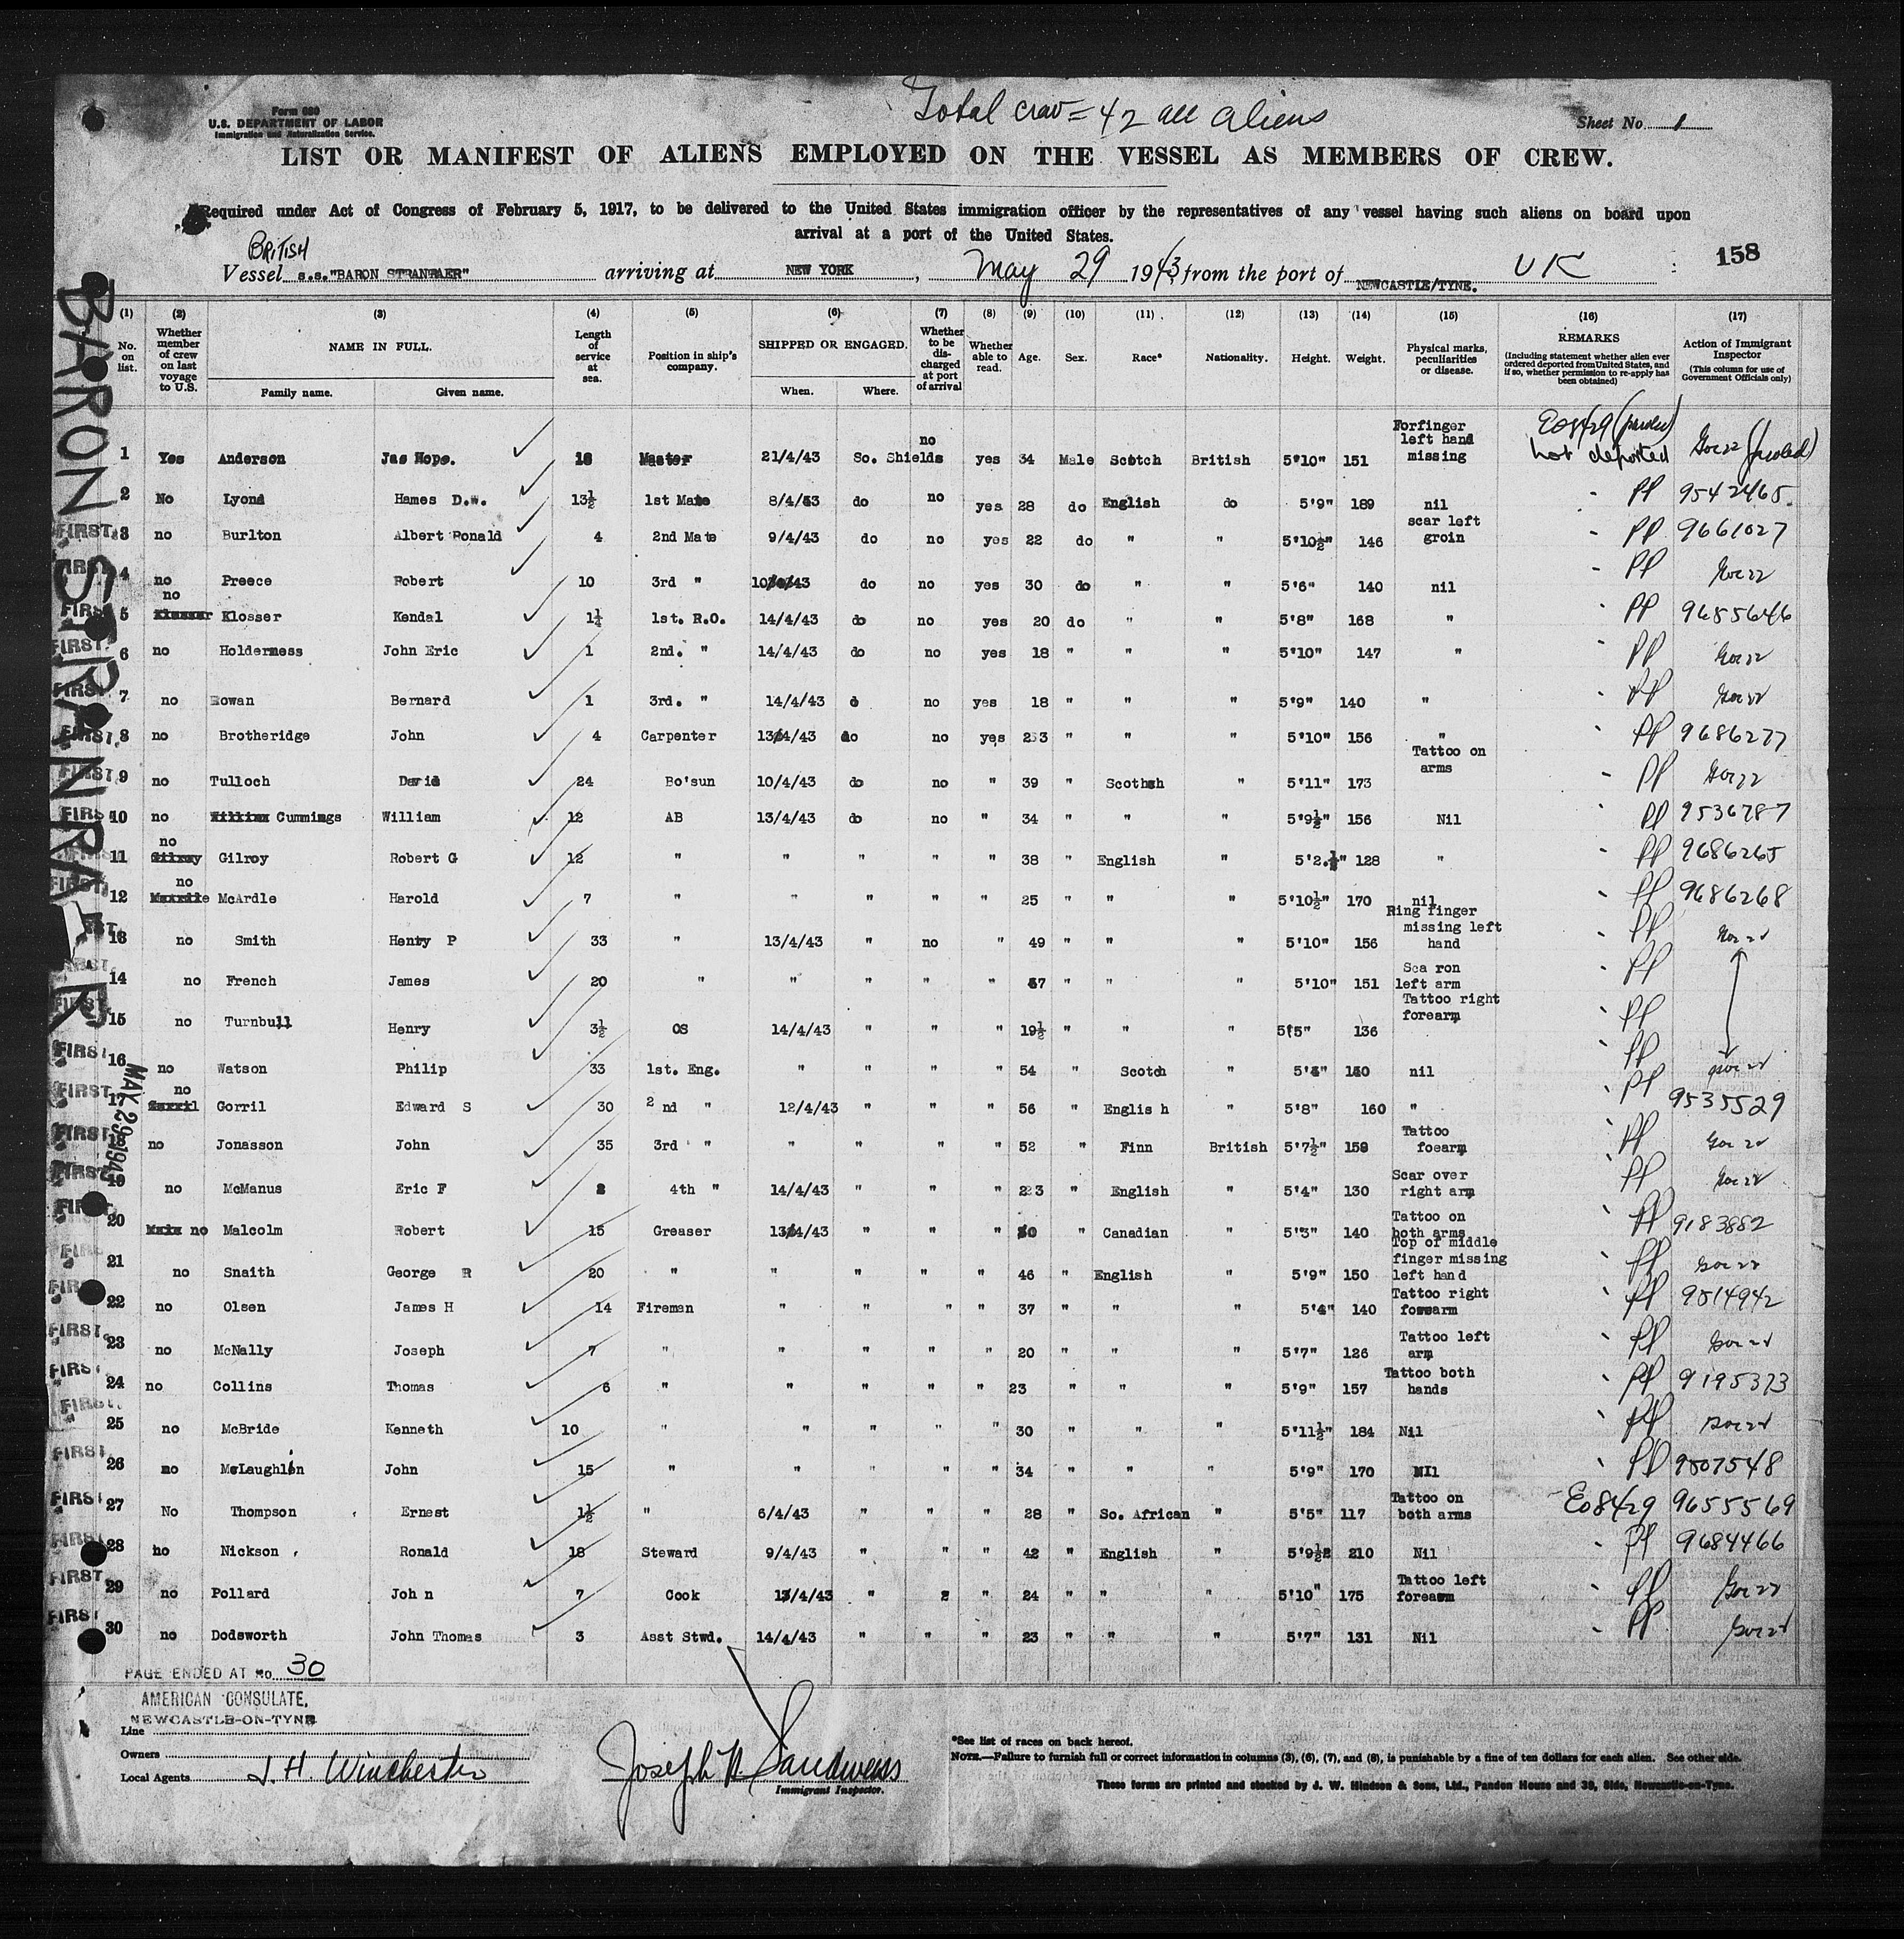 Total crew = 42 all aliens
Form 680
U.S. DEPARTMENT OF LABOR
Immigration and Naturalization Service.
Sheet No. 1
LIST OR MANIFEST OF ALIENS EMPLOYED ON THE VESSEL AS MEMBERS OF CREW.
Required under Act of Congress of February 5, 1917, to be delivered to the United States immigration officer by the representatives of any vessel having such aliens on board upon
arrival at a port of the United States.
BRITISH
158
Vessel s.s."BARON STRANRAER" arriving at NEW YORK, May 29 1943, from the port of NEWCASTLE/TYNE. UK
BARON STRANRAER
MAY 29 1943
(1) (2) (3) (4) (5) (6) (7) (8) (9) (10) (11) (12) (13) (14) (15) (16) (17)
No. on list. Whether member of crew on last voyage to U.S. NAME IN FULL. Family name. Given name. Length of service at sea. Position in ship's company. SHIPPED OR ENGAGED. When. Where. Whether to be discharged at port of arrival Whether able to read. Age. Sex. Race* Nationality. Height. Weight. Physical marks, peculiarities or disease. REMARKS (Including statement whether alien ever ordered deported from United States, and if so, whether permission to re-apply has been obtained) Action of Immigrant Inspector (This column for use of Government Officials only)
1 Yes Anderson Jas Hope. 18 Master 21/4/43 So. Shields no yes 34 Male Scotch British 5'10" 151 Forfinger left hand missing Eo8429 not deported
2 No Lyond Hames D.W. 13½ 1st Mate 8/4/43 do no yes 28 do English do 5'9" 189 nil PP 9542465
FIRST. 3 no Burlton Albert Ronald 4 2nd Mate 9/4/43 do no yes 22 do " " 5'10½" 146 scar left groin PP 9661027
FIRST 4 no Preece Robert 10 3rd " do no yes 30 do " " 5'6" 140 nil PP
FIRST 5 no Klosser Kendal 1¼ 1st. R.O. 14/4/43 do no yes 20 do " " 5'8" 168 " PP 9655646
FIRST. 6 no Holderness John Eric 1 2nd. " 14/4/43 do no yes 18 " " " 5'10" 147 " PP
FIRST. 7 no Rowan Bernard 1 3rd. " 14/4/43 d no yes 18 " " " 5'9" 140 " PP
FIRST. 8 no Brotheridge John 4 Carpenter 13/4/43 do no yes 23 " " " 5'10" 156 " PP 9686277
FIRST 9 no Tulloch David 24 Bo'sun 10/4/43 do no " 39 " Scotch " 5'11" 173 Tattoo on arms PP
FIRST 10 no Cummings William 12 AB 13/4/43 do no " 34 " " " 5'9½" 156 Nil PP 9536787
FIRST 11 no Gilroy Robert G 12 " " " " " 38 " English " 5'2.½" 128 " PP 9686265
FIRST 12 no McArdle Harold 7 " " " " " 25 " " " 5'10½" 170 nil PP 9686268
13 no Smith Henry P 33 " 13/4/43 " no " 49 " " " 5'10" 156 Ring finger missing left hand PP
FIRST. 14 no French James 20 " " " " " " " " 5'10" 151 Sca ron left arm PP
FIRST. 15 no Turnbull Henry 3½ OS 14/4/43 " " " 19½ " " " 5'5" 136 Tattoo right forearm PP
FIRST 16 no Watson Philip 33 1st. Eng. " " " " 54 " Scotch " nil PP
FIRST 17 no Gorril Edward S 30 2nd " 12/4/43 " " " 56 " Englis h " 5'8" 160 " PP 9535529
FIRST 18 no Jonasson John 35 3rd " " " " " 52 " Finn British 5'7½" 159 Tattoo foearm PP
FIRST. 19 no McManus Eric F 2 4th " 14/4/43 " " " 23 " English " 5'4" 130 Scar over right arm PP
FIRST. 20 no Malcolm Robert 15 Greaser 13/4/43 " " " " Canadian " 5'3" 140 Tattoo on both arms PP 9183882
FIRST 21 no Snaith George R 20 " " " " " 46 " English " 5'9" 150 Top of middle finger missing left hand PP
FIRST 22 no Olsen James H 14 Fireman " " " " 37 " " " 5'4" 140 Tattoo right forearm PP 9514942
FIRST. 23 no McNally Joseph 7 " " " " " 20 " " " 5'7" 126 Tattoo left arm PP
FIRST 24 no Collins Thomas 6 " " " " " 23 " " " 5'9" 157 Tattoo both hands PP 9195373
FIRST. 25 no McBride Kenneth 10 " " " " " 30 " " " 5'11½" 184 Nil PP
FIRST 26 no McLaughlin John 15 " " " " " 34 " " " 5'9" 170 NIl PP 9507548
FIRST 27 No Thompson Ernest 1½ " 6/4/43 " " " 28 " So. African " 5'5" 117 Tattoo on both arms Eo8429 9655569
FIRST 28 no Nickson Ronald 18 Steward 9/4/43 " " " 42 " English " 5'9½ 210 Nil PP 9684466
FIRST. 29 no Pollard Joh n 7 Cook 13/4/43 " " " 24 " " " 5'10" 175 Tattoo left forearm PP
FIRST 30 no Dodsworth John Thomas 3 Asst Stwd. 14/4/43 " " " 23 " " " 5'7" 131 Nil PP
PAGE ENDED AT No. 30
AMERICAN CONSULATE,
NEWCASTLE-ON-TYNE
Line
Owners
Local Agents J. H. Winchester
Immigrant Inspector.
*See list of races on back hereof.
NOTE.—Failure to furnish full or correct information in columns (3), (6), (7), and (8), is punishable by a fine of ten dollars for each alien. See other side.
These forms are printed and stocked by J. W. Hindson & Sons, Ltd., Pandon House and 39, Side, Newcastle-on-Tyne.